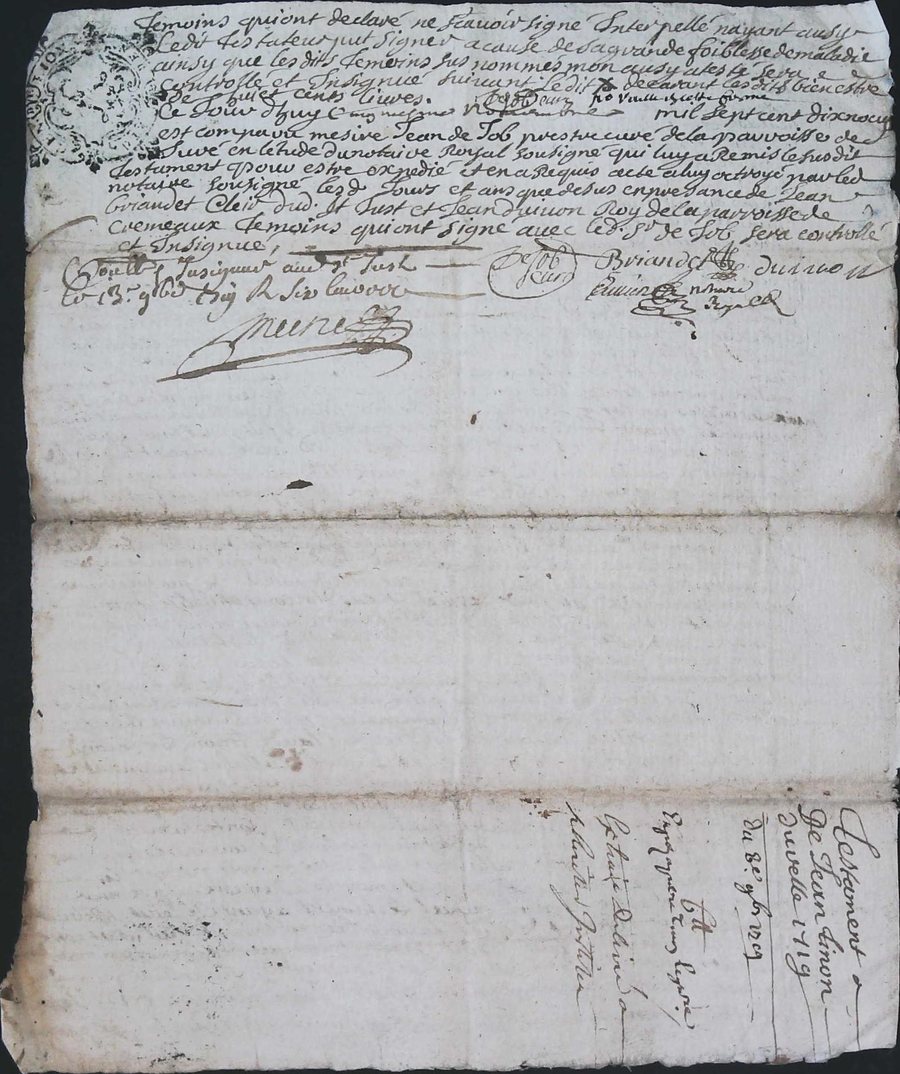 temoins qui ont declaré ne scavoir signé Interpellé nayant aussy
Ledit testateur put signer a cause de sa grande foiblesse de maladie
ainsy que les dits temoins sus nommes mon ausy ateste sera
Controllé et Insignué suivant Ledit declarant lesdits biens estre
de huict cents livres.
Ce Jour d'huy Cinquiesme novembre mil sept cent dixneuf
est comparu mesire Jean de Job prestre curé de la parroisse de
Juré en letude du notaire Royal sousigné qui luy a Remis le susdit
testament pour estre expedié et en a Requis acte a luy octroyé par led
notaire sousigné les d Jours et ans que desus en presance de Jean
Briandet Clerc dud. St Just et Jean duivon Roy de la parroisse de
Cremeaux temoins qui ont signé avec led. Sr de Job sera controllé
et Insignué,
De Job
Curé
Briandet
duivon
Controllé Insignué a St Just
le 13e 9bre R six livres
notaire
Royal
Testament
De Jean Simon
duvelle 1719
du 8e 9bre 1719
Ctt
Extrait Delivré a